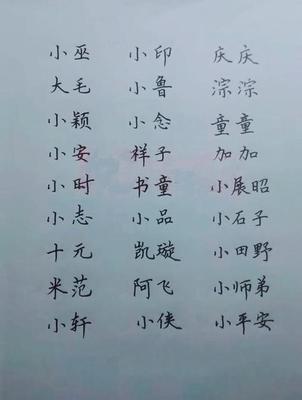 小巫 小印 庆庆
大毛 小鲁 淙淙
小颖 小念 童童
小安 祥子 加加
小时 书童 小展昭
小志 小品 小石子
十元 凯璇 小田野
米范 阿飞 小师弟
小轩 小侠 小平安